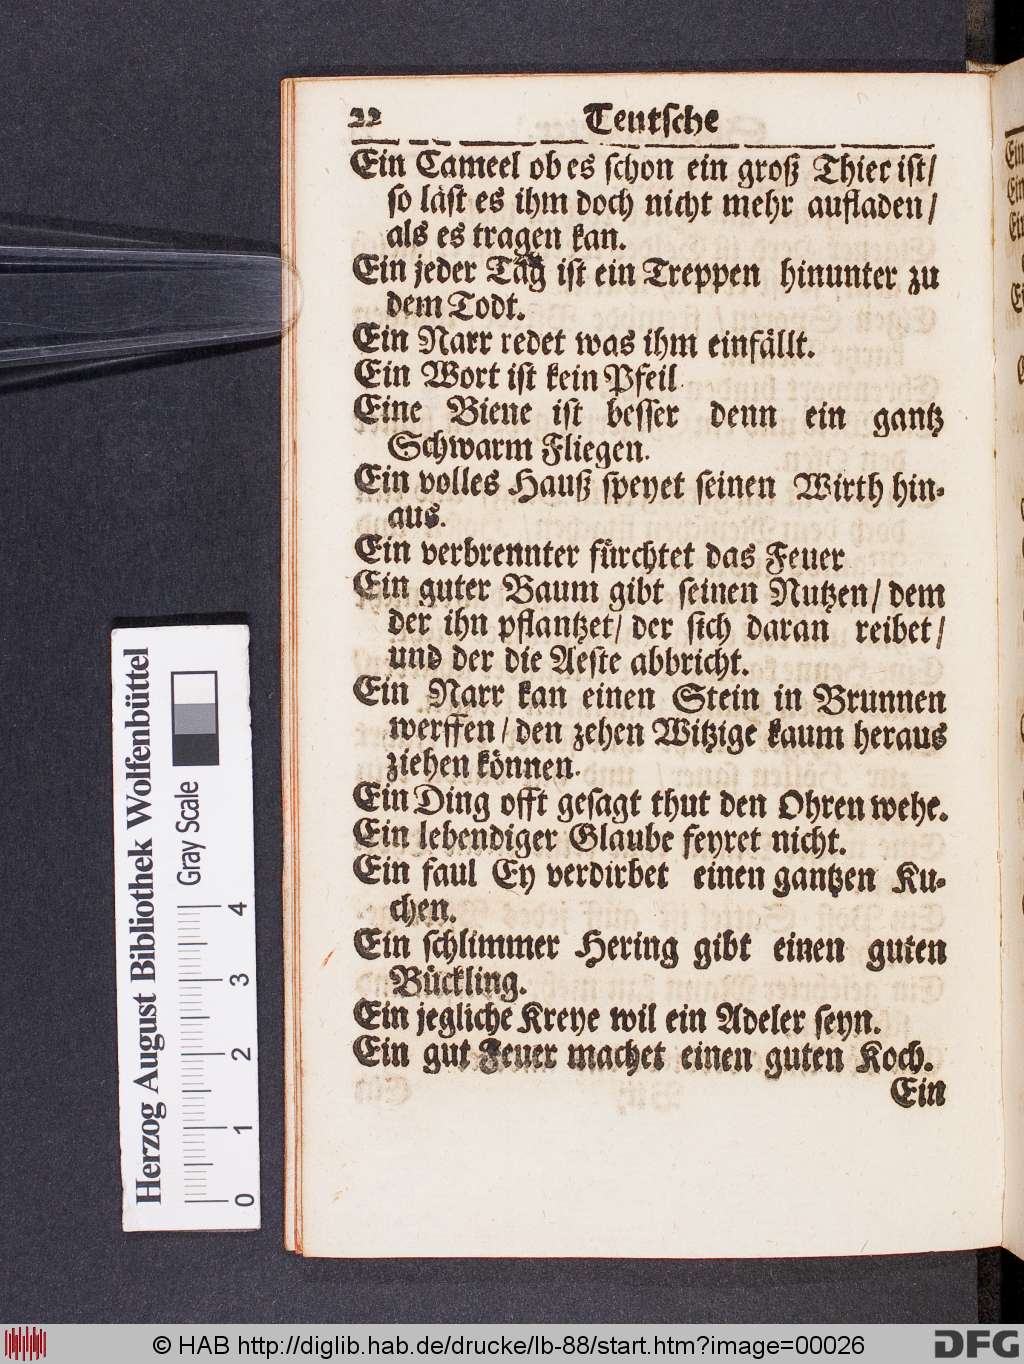 22 Teutsche
Ein Cameel ob es schon ein groß Thier ist/
so läst es ihm doch nicht mehr aufladen/
als es tragen kan.
Ein jeder Tag ist ein Treppen hinunter zu
dem Todt.
Ein Narr redet was ihm einfällt.
Ein Wort ist kein Pfeil.
Eine Biene ist besser denn ein gantz
Schwarm Fliegen.
Ein volles Hauß speyet seinen Wirth hin-
aus.
Ein verbrennter fürchtet das Feuer
Ein guter Baum gibt seinen Nutzen/ dem
der ihn pflantzet/ der sich daran reibet/
und der die Aeste abbricht.
Ein Narr kan einen Stein in Brunnen
werffen/ den zehen Witzige kaum heraus
ziehen können.
Ein Ding offt gesagt thut den Ohren wehe.
Ein lebendiger Glaube feyret nicht.
Ein faul Ey verdirbet einen gantzen Ku-
chen.
Ein schlimmer Hering gibt einen guten
Bückling.
Ein jegliche Kreye wil ein Adeler seyn.
Ein gut Feuer machet einen guten Koch.
Ein
Herzog August Bibliothek Wolfenbüttel
Gray Scale
0 1 2 3 4
© HAB http://diglib.hab.de/drucke/lb-88/start.htm?image=00026
DFG